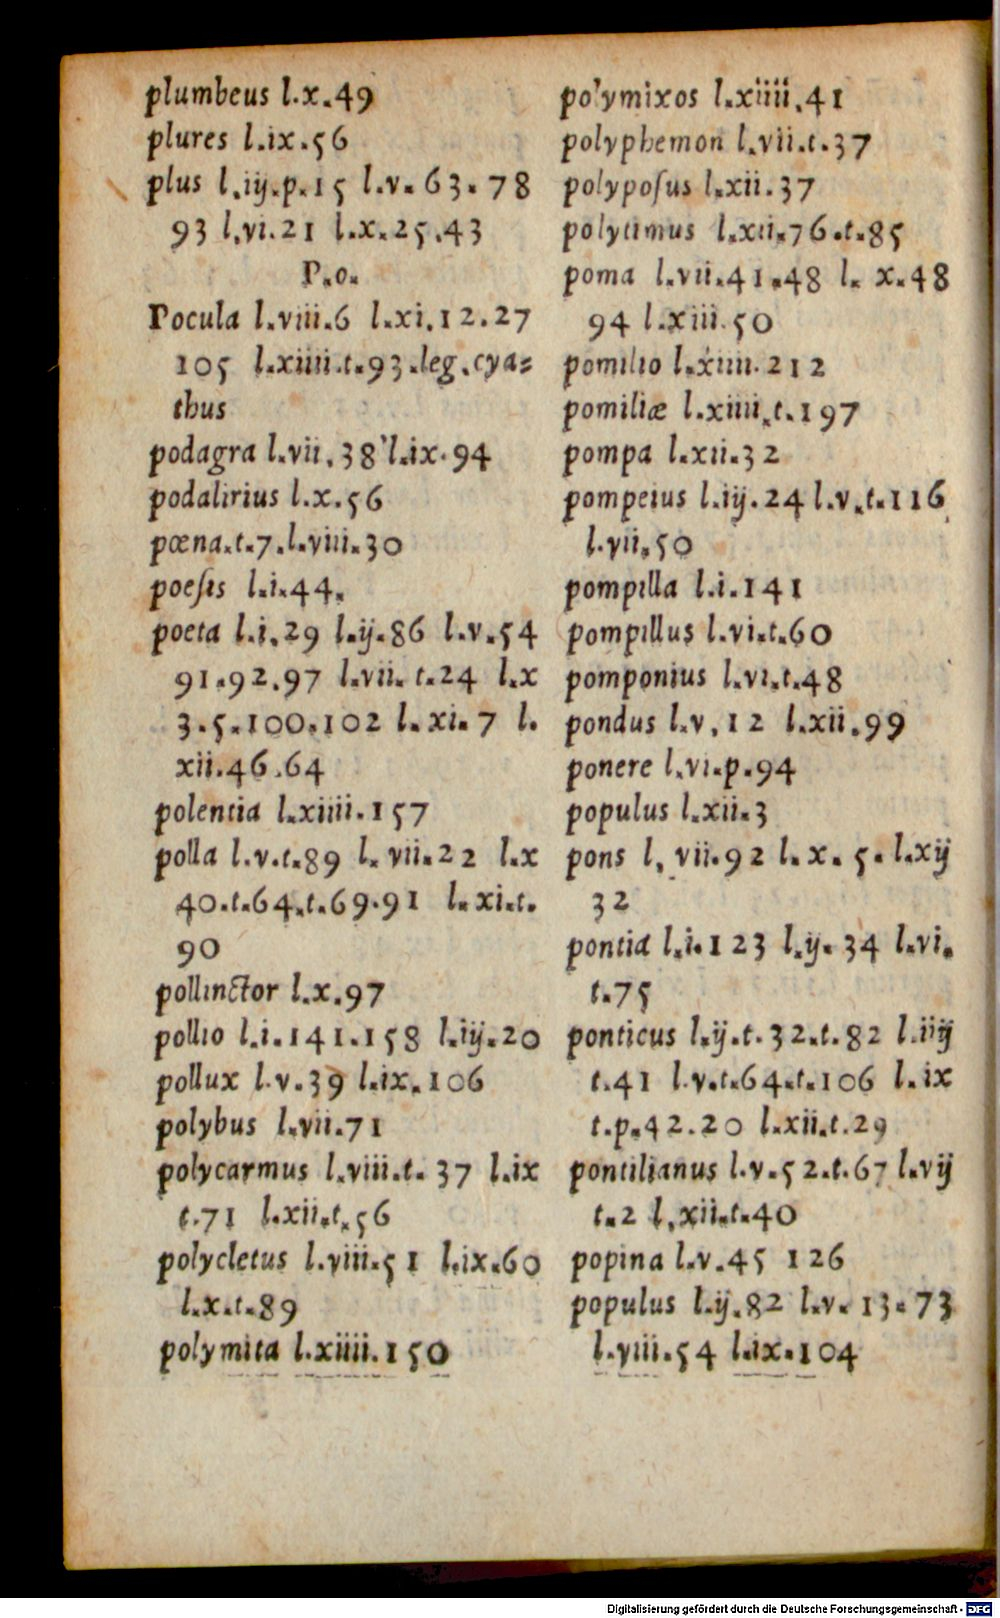 plumbeus l.x.49
plures l.ix.56
plus l.iij.p.15 l.v.63.78
93 l.vi.21 l.x.25.43
P.o.
Pocula l.viii.6 l.xi.12.27
105 l.xiiii.t.93.leg.cya=
thus
podagra l.vii.38 l.ix.94
podalirius l.x.56
pœna.t.7.l.viii.30
poeſis l.i.44.
poeta l.i.29 l.ij.86 l.v.54
91.92.97 l.vii.t.24 l.x
3.5.100.102 l.xi.7 l.
xii.46.64
polentia l.xiiii.157
polla l.v.t.89 l.vii.22 l.x
40.t.64.t.69.91 l.xi.t.
90
pollinctor l.x.97
pollio l.i.141.158 l.iij.20
pollux l.v.39 l.ix.106
polybus l.vii.71
polycarmus l.viii.t.37 l.ix
t.71 l.xii.t.56
polycletus l.viii.51 l.ix.60
l.x.t.89
polymita l.xiiii.150
polymixos l.xiiii.41
polyphemon l.vii.t.37
polypoſus l.xii.37
polytimus l.xii.76.t.85
poma l.vii.41.48 l.x.48
94 l.xiii.50
pomilio l.xiiii.212
pomiliæ l.xiiii.t.197
pompa l.xii.32
pompeius l.iij.24 l.v.t.116
l.vii.50
pompilla l.i.141
pompillus l.vi.t.60
pomponius l.vi.t.48
pondus l.v.12 l.xii.99
ponere l.vi.p.94
populus l.xii.3
pons l.vii.92 l.x.5.l.xij
32
pontia l.i.123 l.ij.34 l.vi.
t.75
ponticus l.ij.t.32.t.82 l.iij
t.41 l.v.t.64.t.106 l.ix
t.p.42.20 l.xii.t.29
pontilianus l.v.52.t.67 l.vij
t.2 l.xii.t.40
popina l.v.45 126
populus l.ij.82 l.v.13.73
l.viii.54 l.ix.104
Digitalisierung gefördert durch die Deutsche Forschungsgemeinschaft - DFG